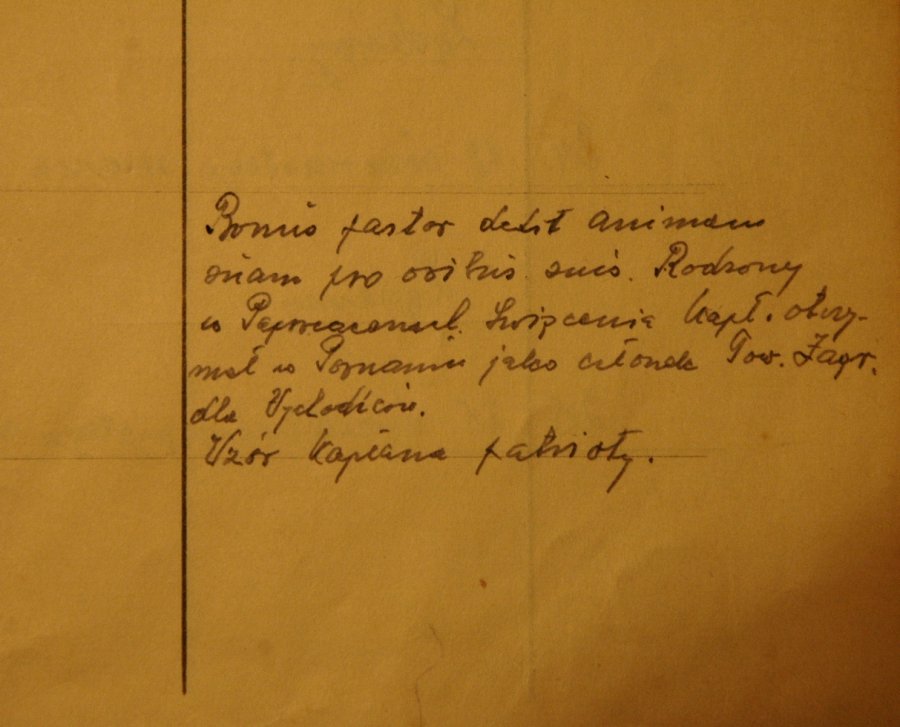 Bonus pastor dedit animam
suam pro ovibus suis. Rodzony
w Święcenia kapł. otrzy-
mał w Poznaniu jako członek Tow. Zagr.
dla Wychodźców.
Wzór kapłana patrioty.